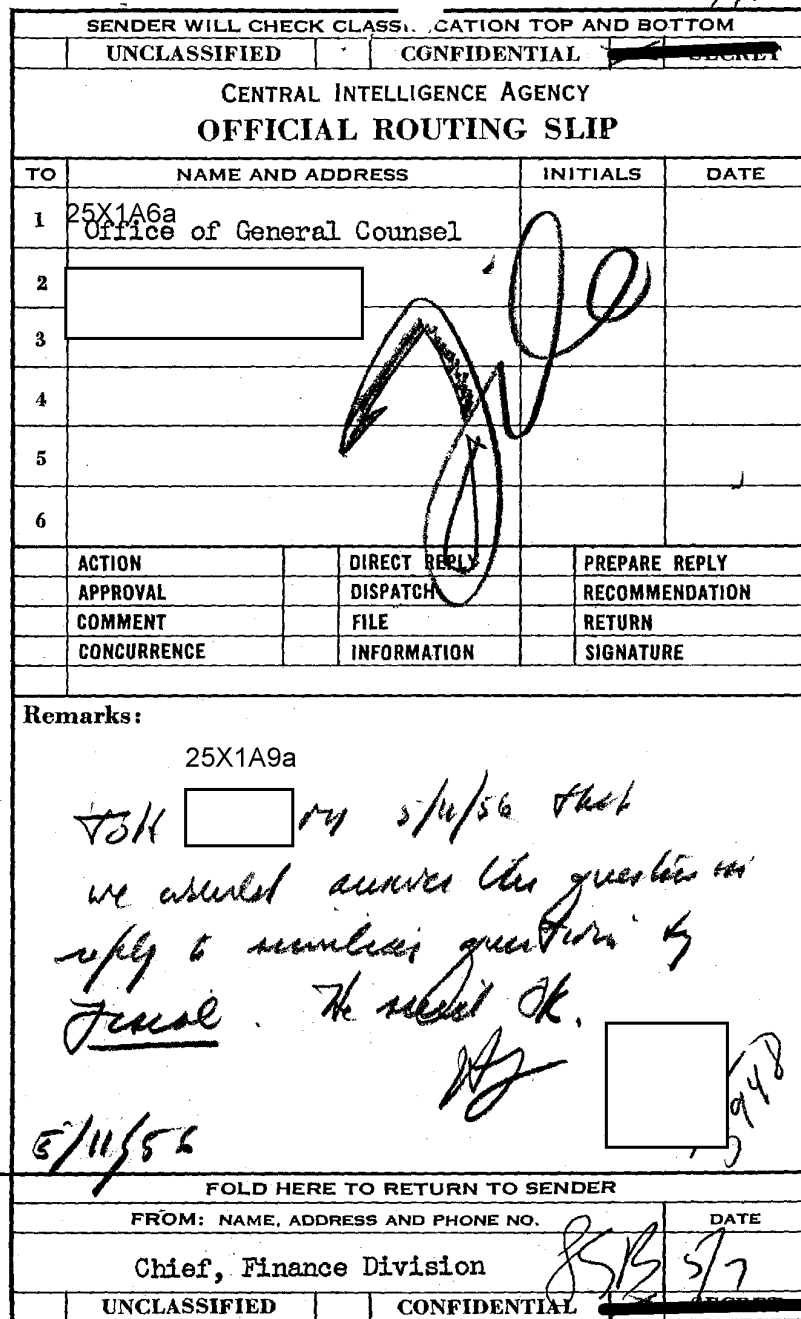 SENDER WILL CHECK CLASSI CATION TOP AND BOTTOM
UNCLASSIFIED CONFIDENTIAL SECRET
CENTRAL INTELLIGENCE AGENCY
OFFICIAL ROUTING SLIP
TO NAME AND ADDRESS INITIALS DATE
1 25X1A6a
Office of General Counsel
2
3
4
5
6
File
ACTION DIRECT REPLY PREPARE REPLY
APPROVAL DISPATCH RECOMMENDATION
COMMENT FILE RETURN
CONCURRENCE INFORMATION SIGNATURE
Remarks:
25X1A9a
Told 5/11/56 that
we would answer this question in
reply to similar question by
Fiscal. He said OK.
5948
5/11/56
FOLD HERE TO RETURN TO SENDER
FROM: NAME, ADDRESS AND PHONE NO. DATE
Chief, Finance Division 5/7
UNCLASSIFIED CONFIDENTIAL SECRET